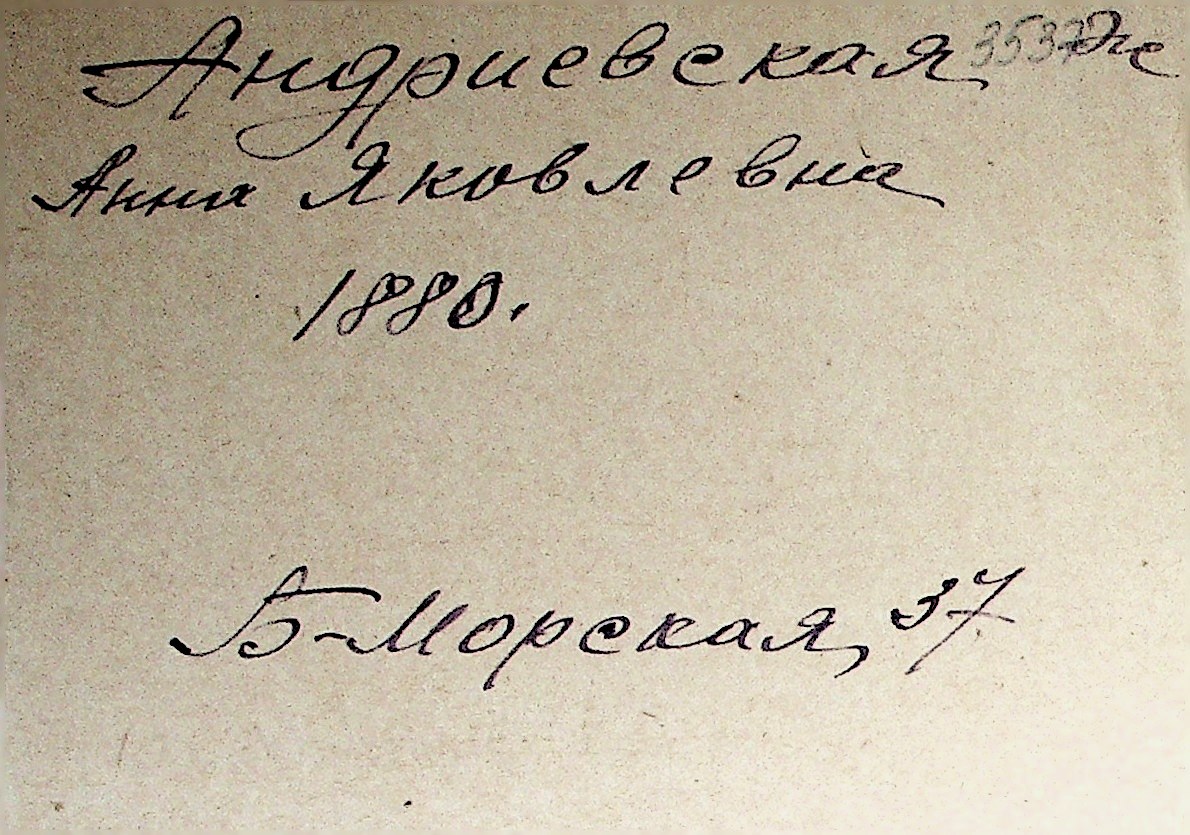 Андриевская
Анна Яковлевна
1880.
Б-Морская, 37